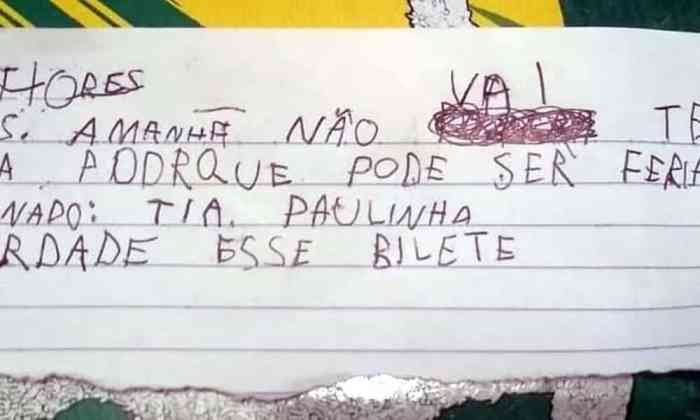 HORES VAI
S. AMANHÃ NÃO TE
A PODRQUE PODE SER FERIA
NADO: TIA. PAULINHA
RDADE ESSE BILETE